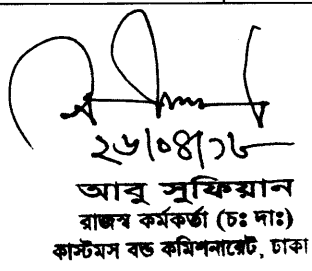 ২৬/০৪/১৮
আবু সুফিয়ান
রাজস্ব কর্মকর্তা (চঃ দাঃ)
কাস্টমস বন্ড কমিশনারেট, ঢাকা